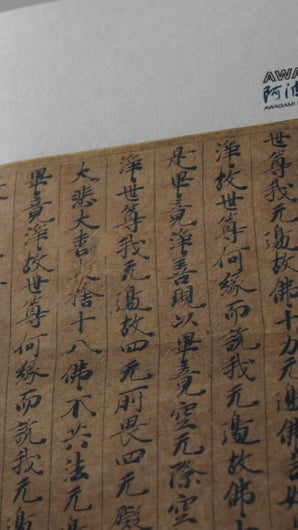 AWA
阿波
AWAGAMI
世尊我无邊故佛十力无邊佛言
淨故世尊何緣而說我无邊故佛
是畢竟淨善現以畢竟空无際空
淨世尊我无邊故四无所畏四无礙
大悲大喜大捨十八佛不共法无
畢竟淨故世尊何緣而說我无